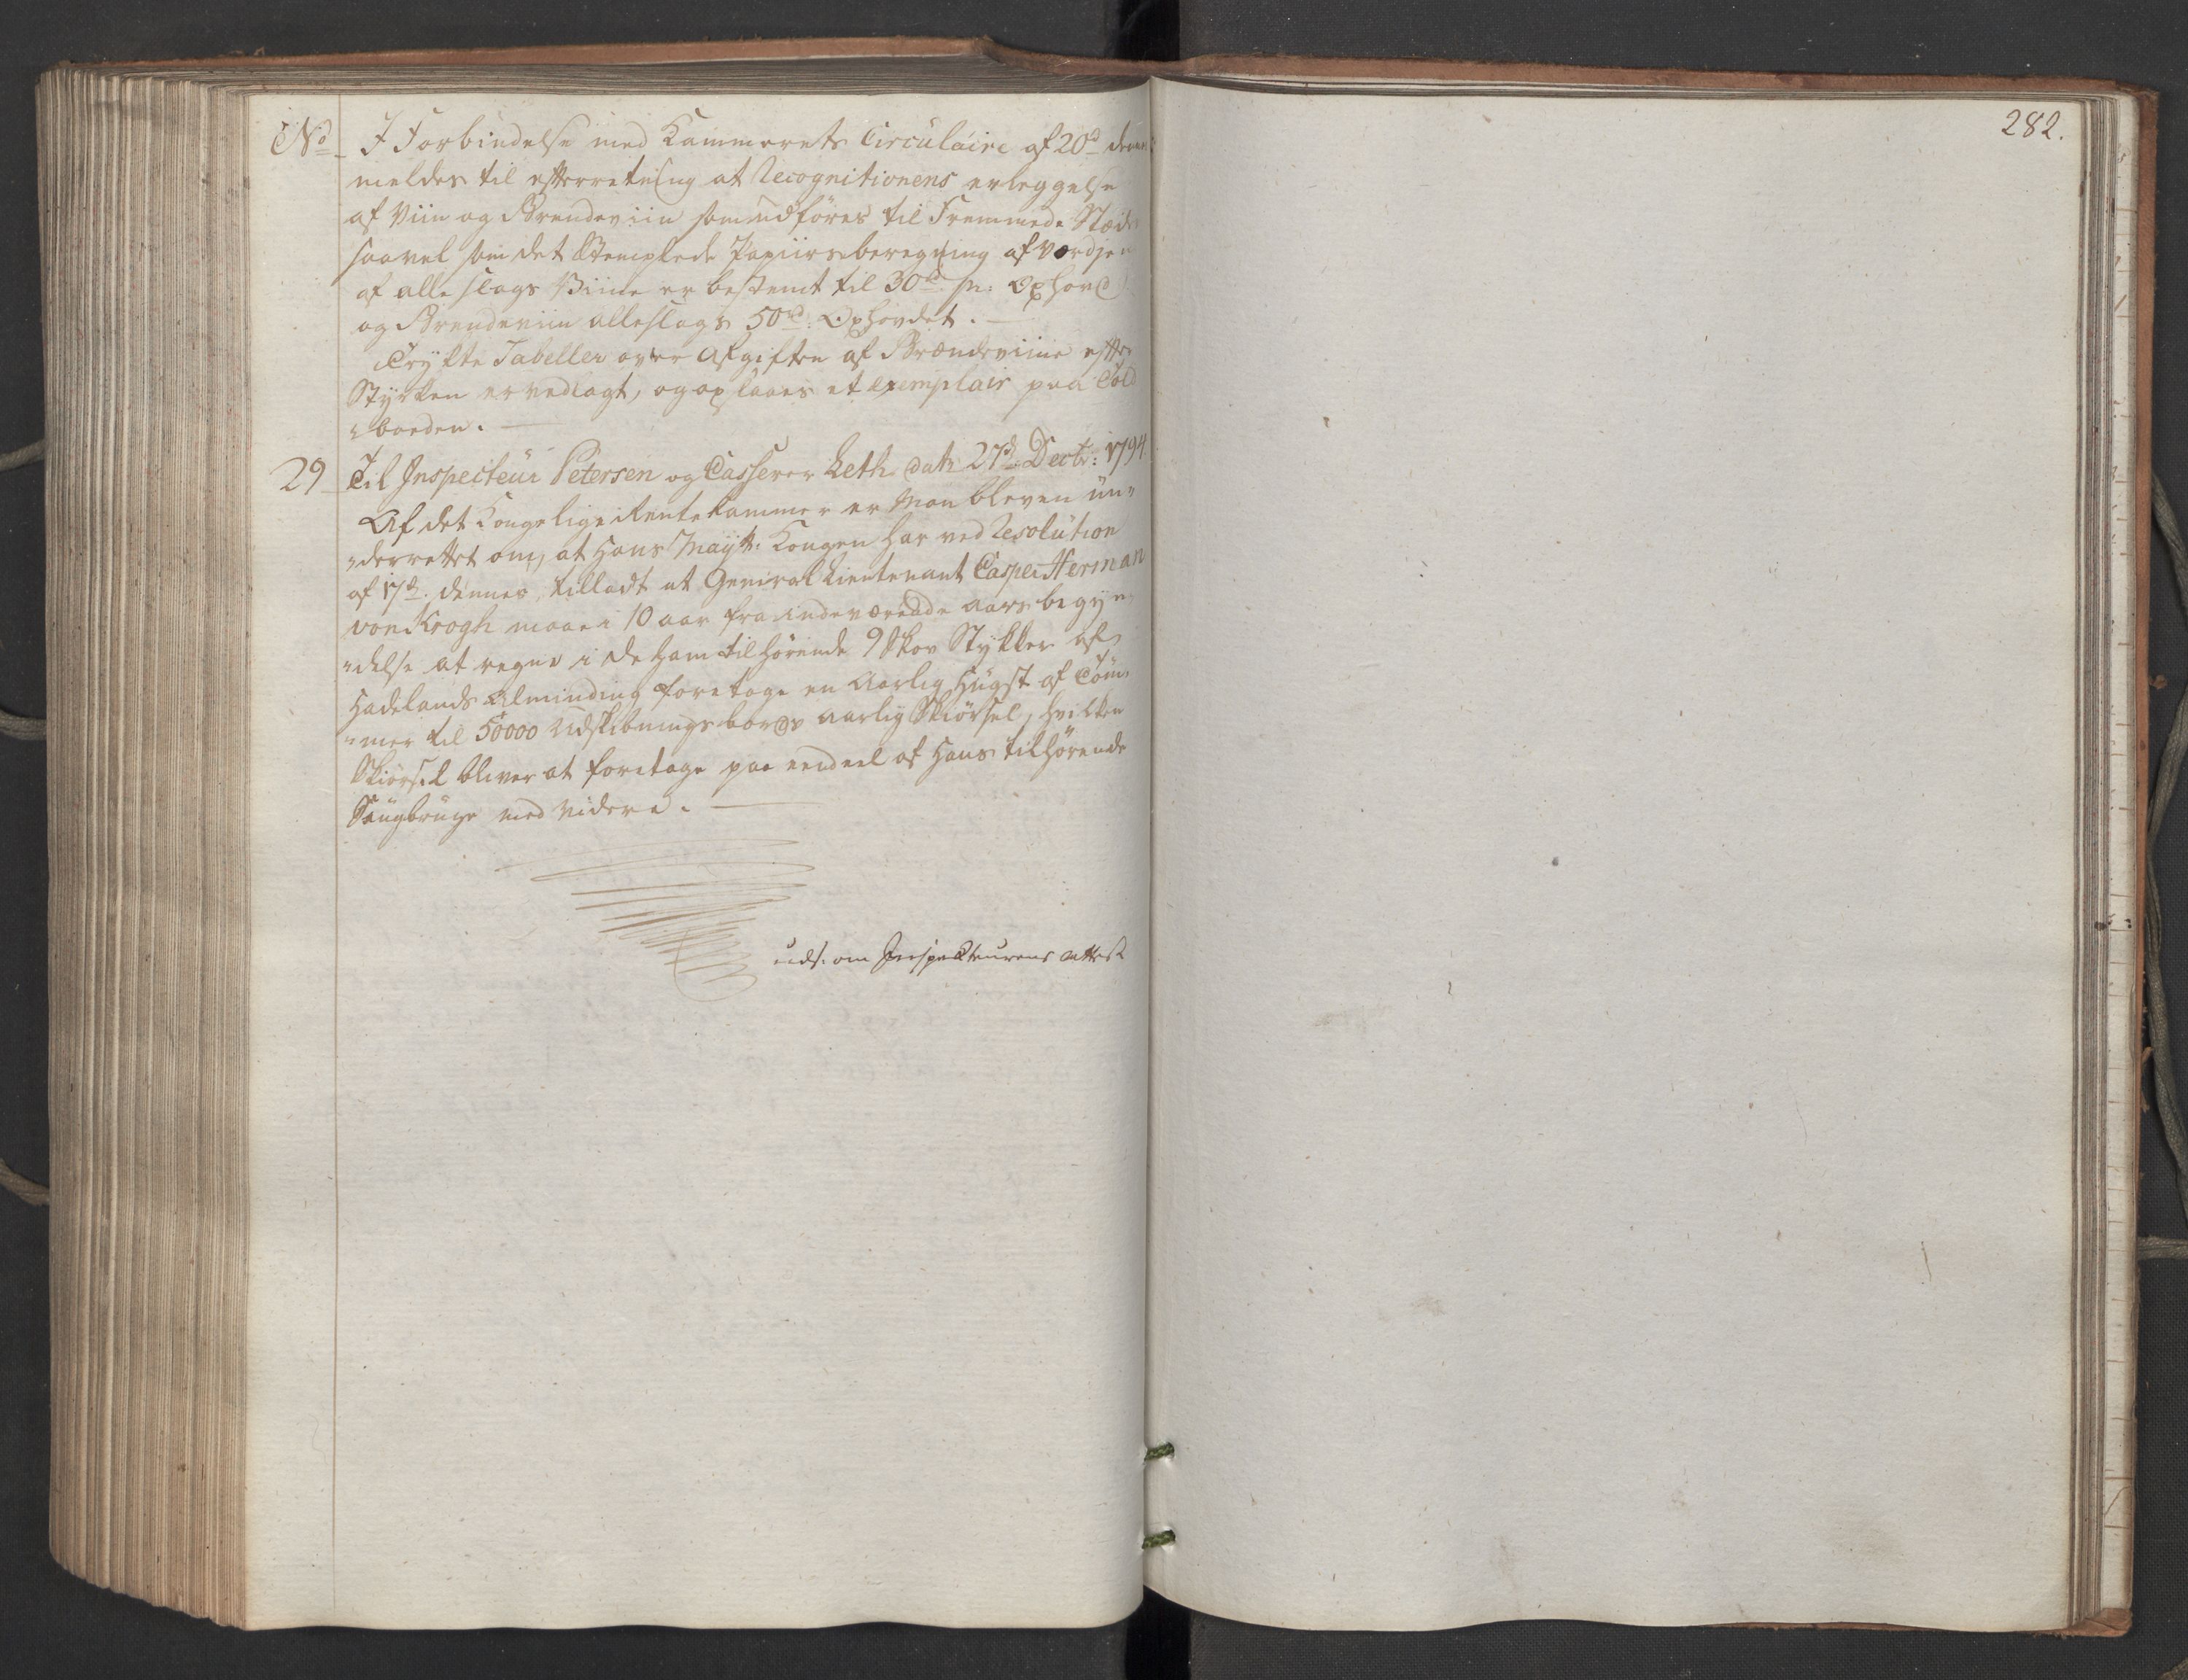 No I Forbindelse med Kammerets Circulaire af 20d. denne
meldes til efterretning at Recognitionens erleggelse
af Viin og Brendeviin som udføres til Fremmede Stæder
saavel som det Stemplede Papiirs beregning af Verdjen
af alle slags Viine er bestemt til 30rd. pr: Oxhoved
og Brendeviin alleslags 50rd: Oxhovdet. —
Trykte Tabeller over Afgiften af Brændeviine efter
Styrken er vedlagt, og opslaaes et Exemplair paa Told
boeden. —
29 Til Inspecteur Petersen og Casserer Leth dat: 27de Decbr: 1794
Af det Kongelige Rentekammer er Man bleven un„
„derrettet om, at Hans Mayt: Kongen har ved Resolution
af 17de. dennes, tilladt at General Lieutenant Casper Herman
von Krogh maae i 10 aar fra indeværende aars begyn„
„delse at regne i de ham tilhørende 9 Skov Stykker af
Hadelands Alminding foretage en Aarlig Hugst af Tøm„
„mer til 50000 Udskibningsborder aarlig Skiørsel, hvilken
Skiørsel bliver at foretage paa eendeel af Hans tilhørende
Saugbruge med videre. —
uds: om Inspecteurens attest
282.